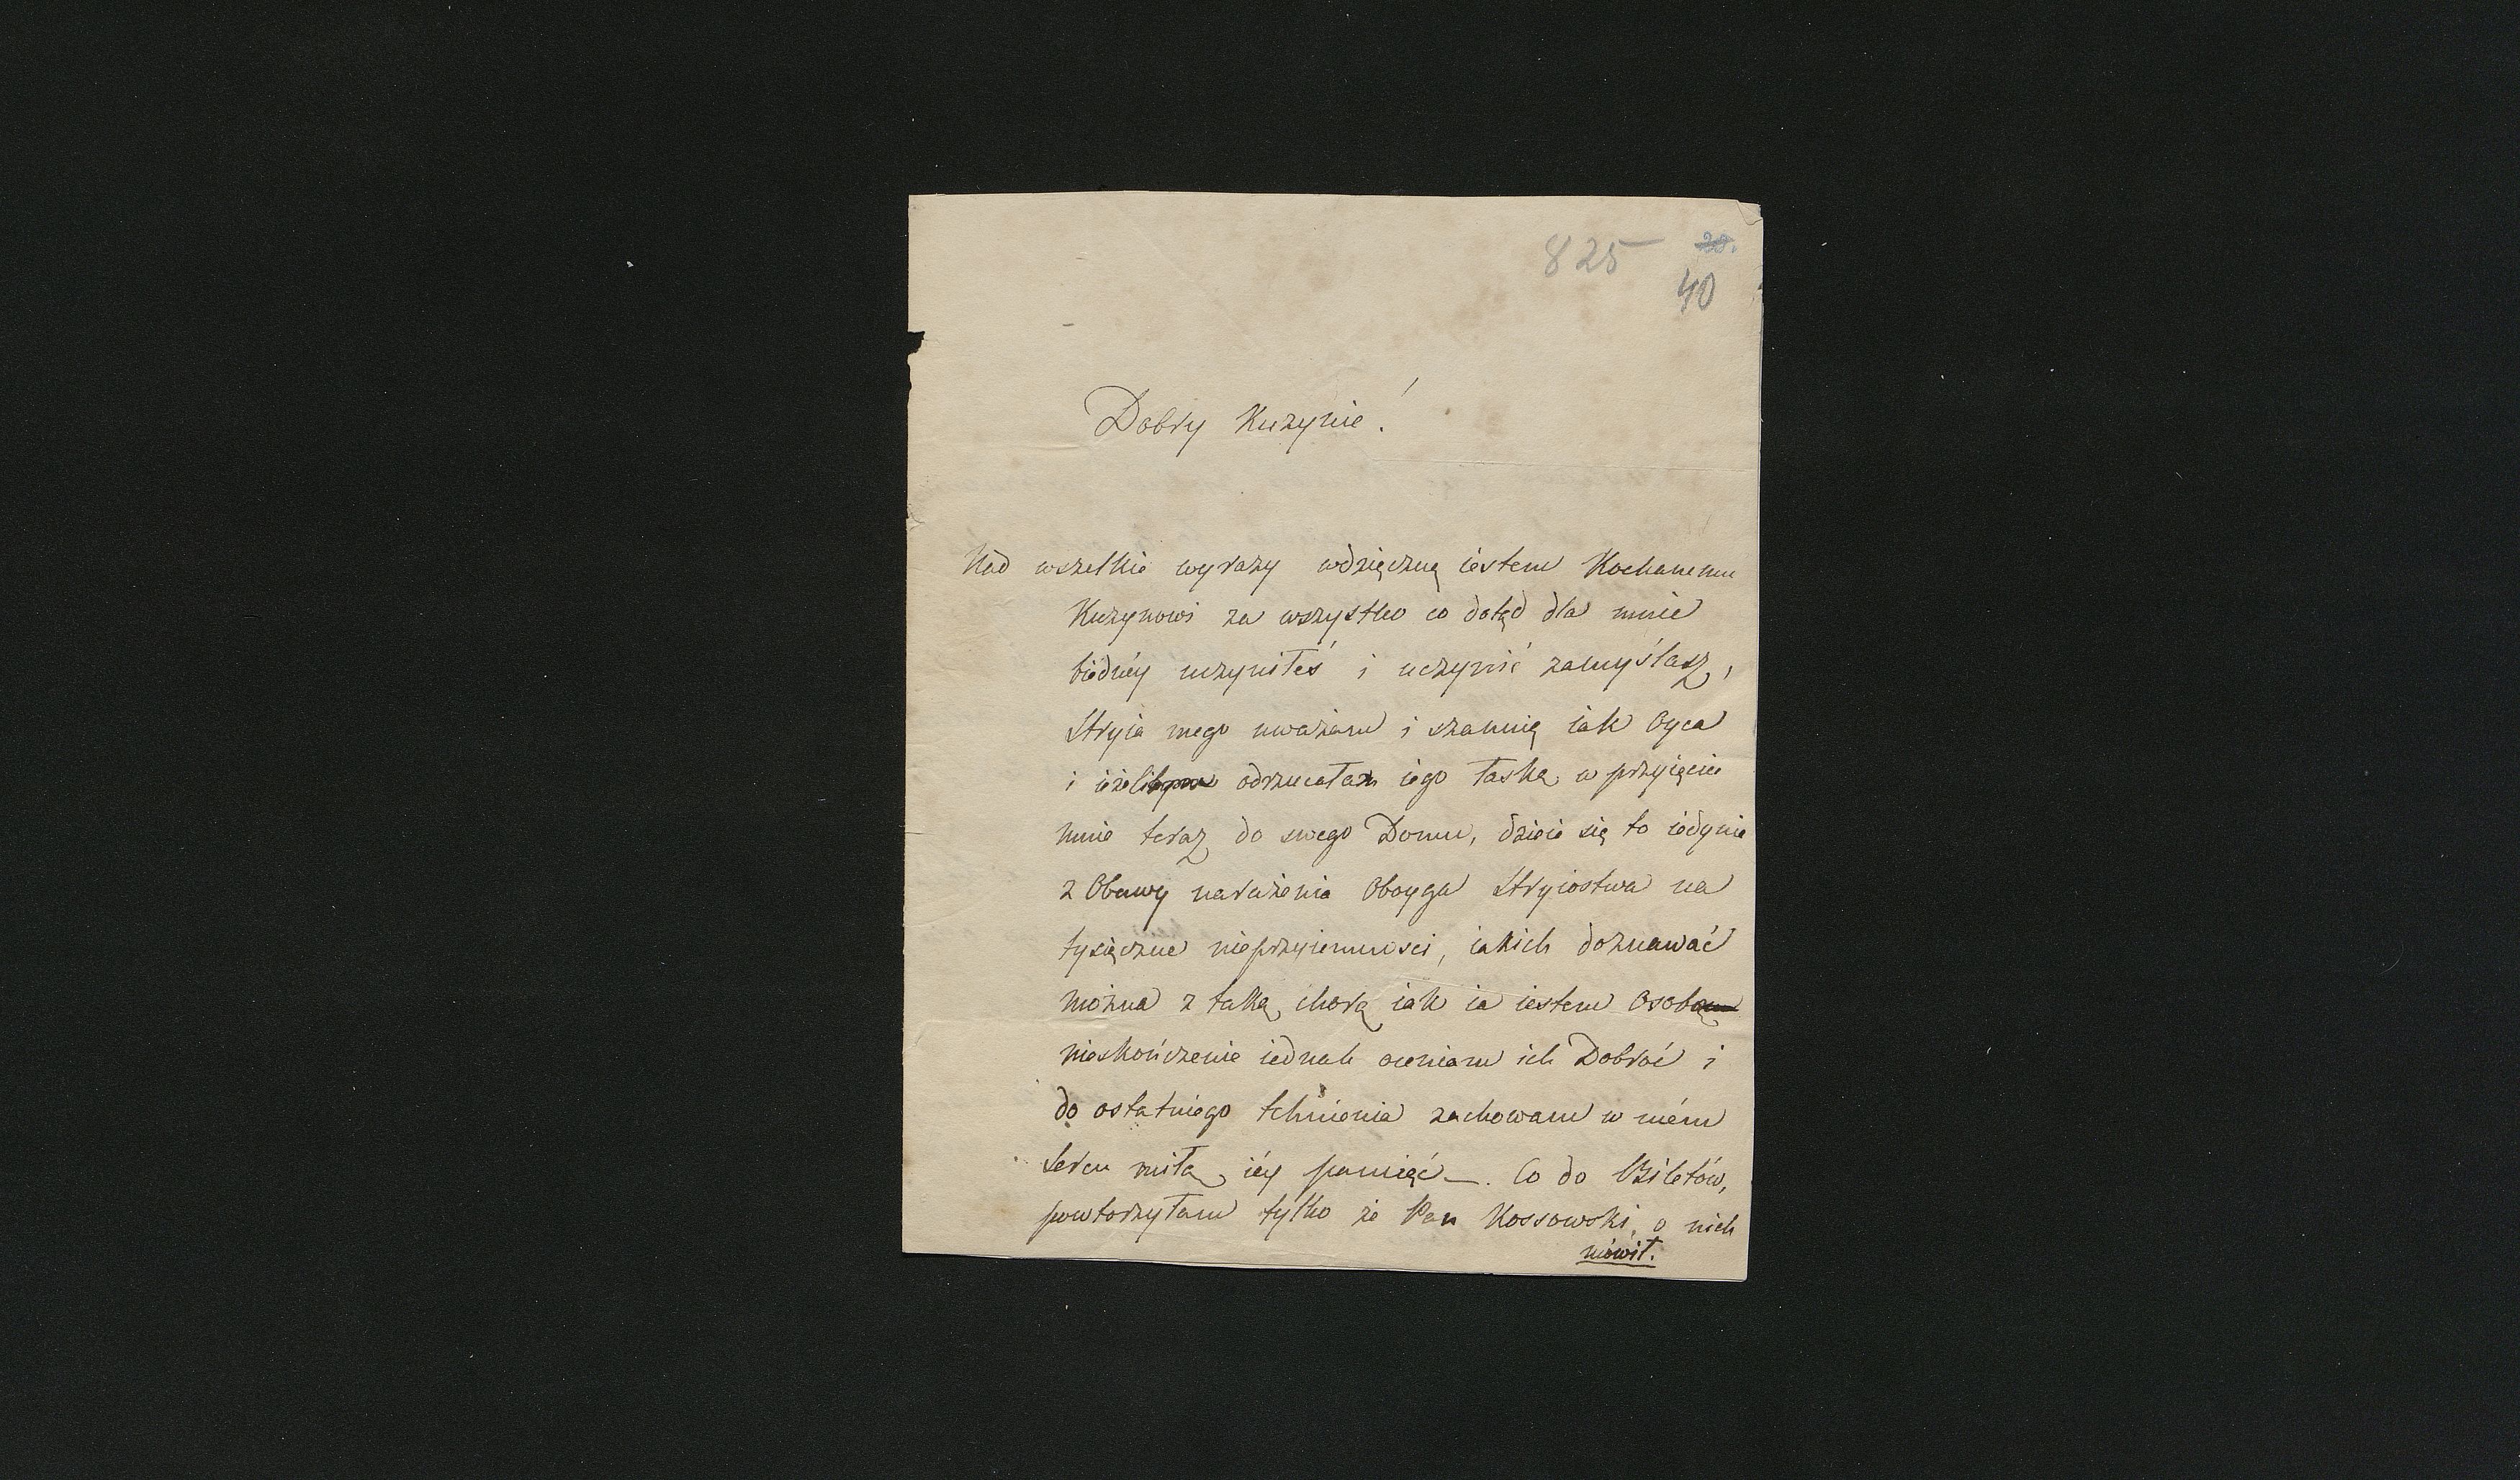 825
40
Dobry Kuzynie!
Nad wszelkie wyrazy wdzięczną iestem Kochanemu
Kuzynowi za wszystko co dotąd dla mnie
biédnéy uczyniłeś i uczynić zamyślasz,
Stryia mego uważam i szanuię iak Oyca
i ieżeli odrzucałam iego łaskę w przyięcie
mnie teraz do swego Domu, dzieie się to iedynie
z Obawy narażenia Oboyga Stryiostwa na
tysięczne nieprzyiemności, iakich doznawać
można z taką chorą iak ia iestem Osobą
nieskończenie iednak oceniam ich Dobroć i
do ostatniego tchnienia zachowam w mém
Sercu miłą iéy pamięć —. Co do Biletów,
powtorzyłam tylko że Pan Kossowski o nich
mówił.